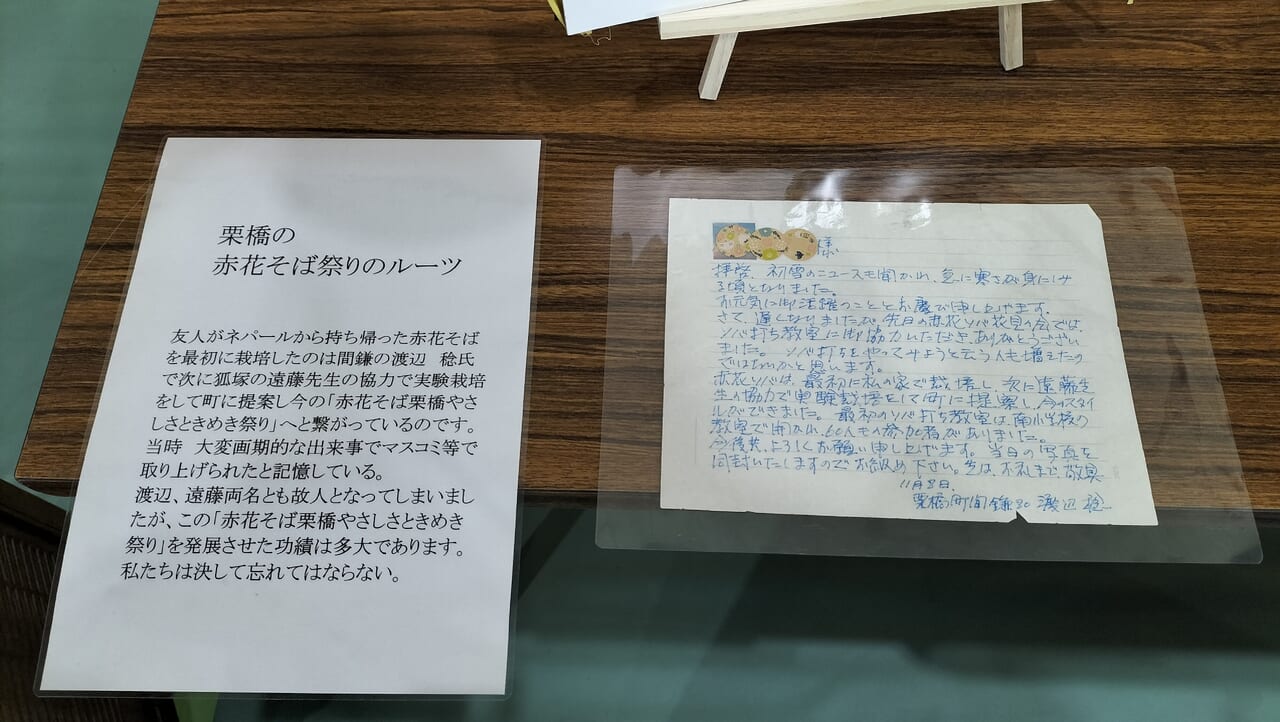 栗橋の
赤花そば祭りのルーツ
友人がネパールから持ち帰った赤花そば
を最初に栽培したのは間鎌の渡辺　稔氏
で次に狐塚の遠藤先生の協力で実験栽培
をして町に提案し今の「赤花そば栗橋やさ
しさときめき祭り」へと繋がっているのです。
当時　大変画期的な出来事でマスコミ等で
取り上げられたと記憶している。
渡辺、遠藤両名とも故人となってしまいまし
たが、この「赤花そば栗橋やさしさときめき
祭り」を発展させた功績は多大であります。
私たちは決して忘れてはならない。
様
拝啓、初雪のニュースも聞かれ、急に寒さが身にし
る頃となりました。
お元気に御活躍のこととお慶び申し上げます。
さて、遅くなりましたが、先日の赤花ソバ花見の会では、
ソバ打ち教室に御協力いただき、ありがとうござい
ました。ソバ打ちをやってみようと云う人も増えたの
ではないかと思います。
赤花ソバは、最初に私の家で栽培し、次に遠藤先
生の協力で実験栽培をして町に提案し、今のスタイ
ルができました。最初のソバ打ち教室は、南小学校の
教室で開かれ、60人もの参加者がありました。
今後共、よろしくお願い申し上げます。当日の写真を
同封いたしますのでお納め下さい。先は、お礼まで、敬具
11月8日、
栗橋町間鎌30 渡辺 稔